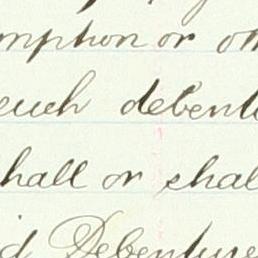 mption or ot
such debent
hall or shal
d Debenture